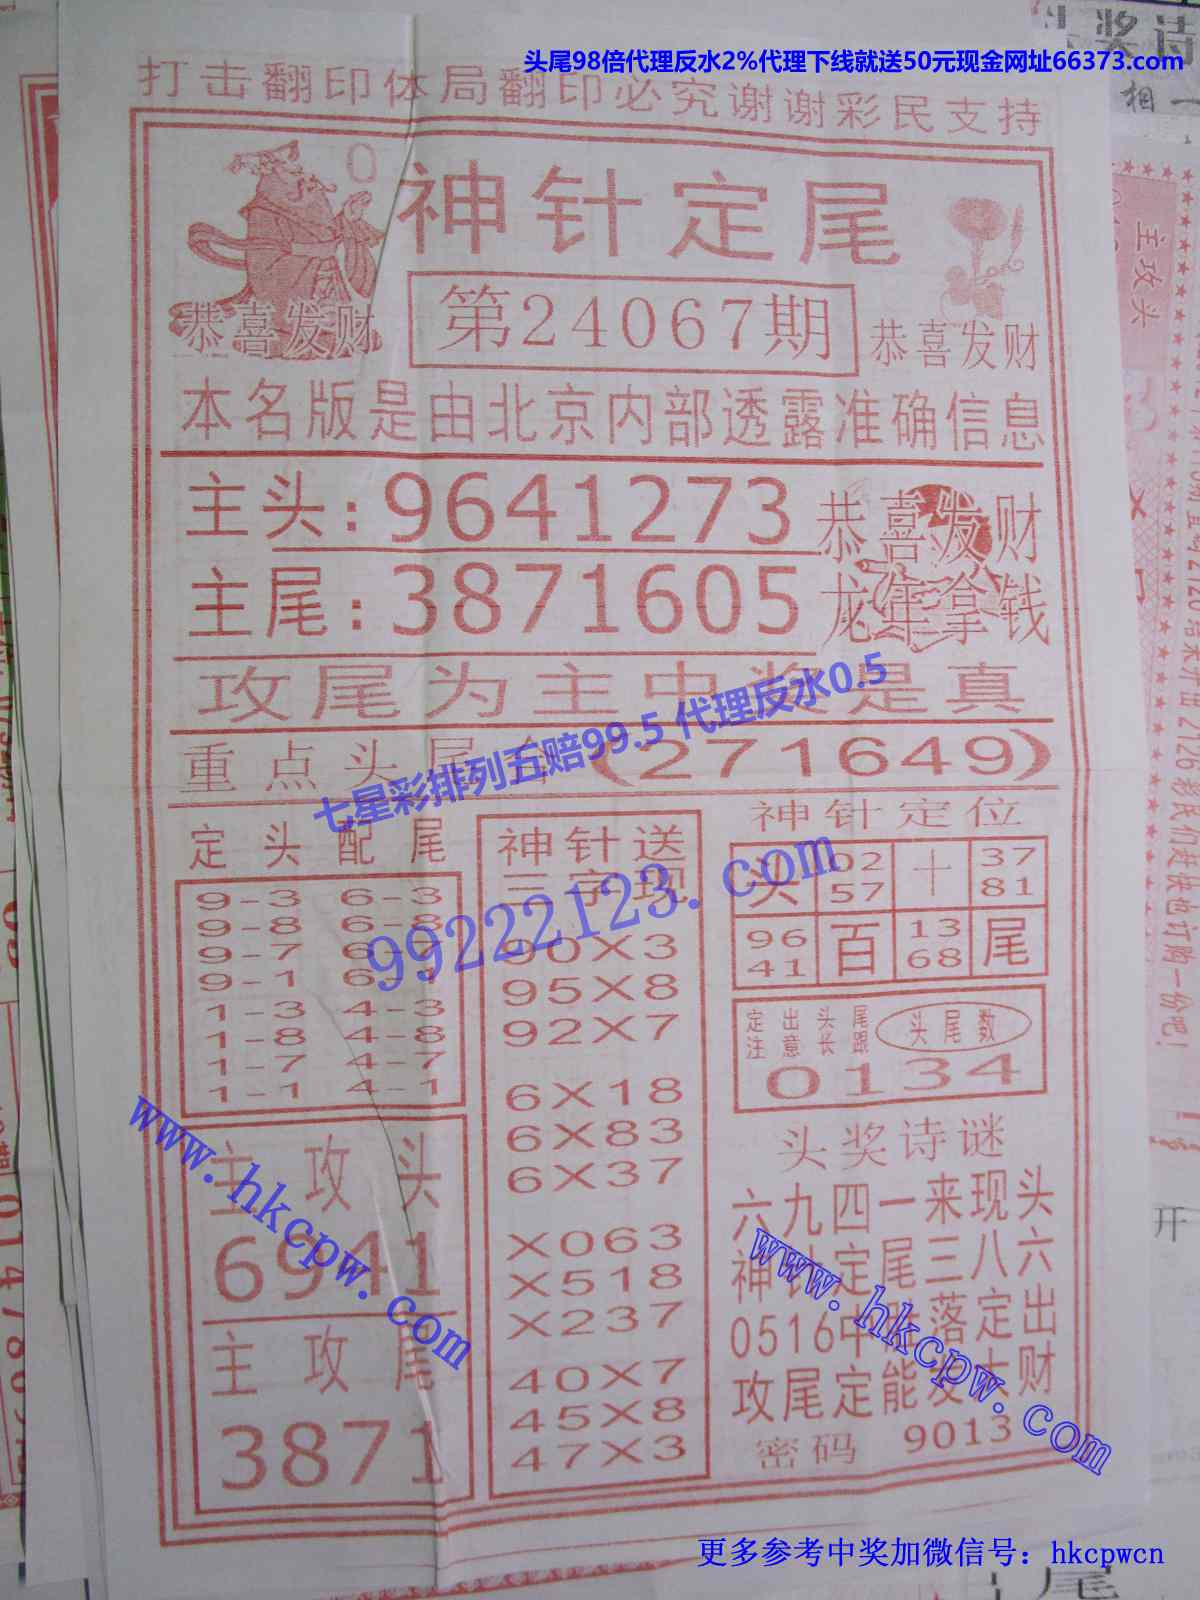 头尾98倍代理反水2%代理下线就送50元现金网址66373.com
打击翻印体局翻印必究谢谢彩民支持
神针定尾
第24067期
恭喜发财
恭喜发财
本名版是由北京内部透露准确信息
主头:9641273
恭喜发财
主尾:3871605
龙年拿钱
攻尾为主中奖是真
重点头尾
(271649)
七星彩排列五赔99.5 代理反水0.5
定头配尾
9-3 6-3
9-8 6-8
9-7 6-7
9-1 6-1
1-3 4-3
1-8 4-8
1-7 4-7
1-1 4-1
主攻头
6941
主攻尾
3871
神针送
三字现
90X3
95X8
92X7
6X18
6X83
6X37
X063
X518
X237
40X7
45X8
47X3
神针定位
头 02 十 37
57 81
96 百 13 尾
41 68
定出头尾
注意长跟
头尾数
0134
头奖诗谜
六九四一来现头
神针定尾三八六
0516中胜落定出
攻尾定能发大财
密码 9013
99222123.com
www.hkcpw.com
www.hkcpw.com
更多参考中奖加微信号：hkcpwcn
奖诗
相一
主攻头
彩民们赶快也订购一份吧!
开
尾